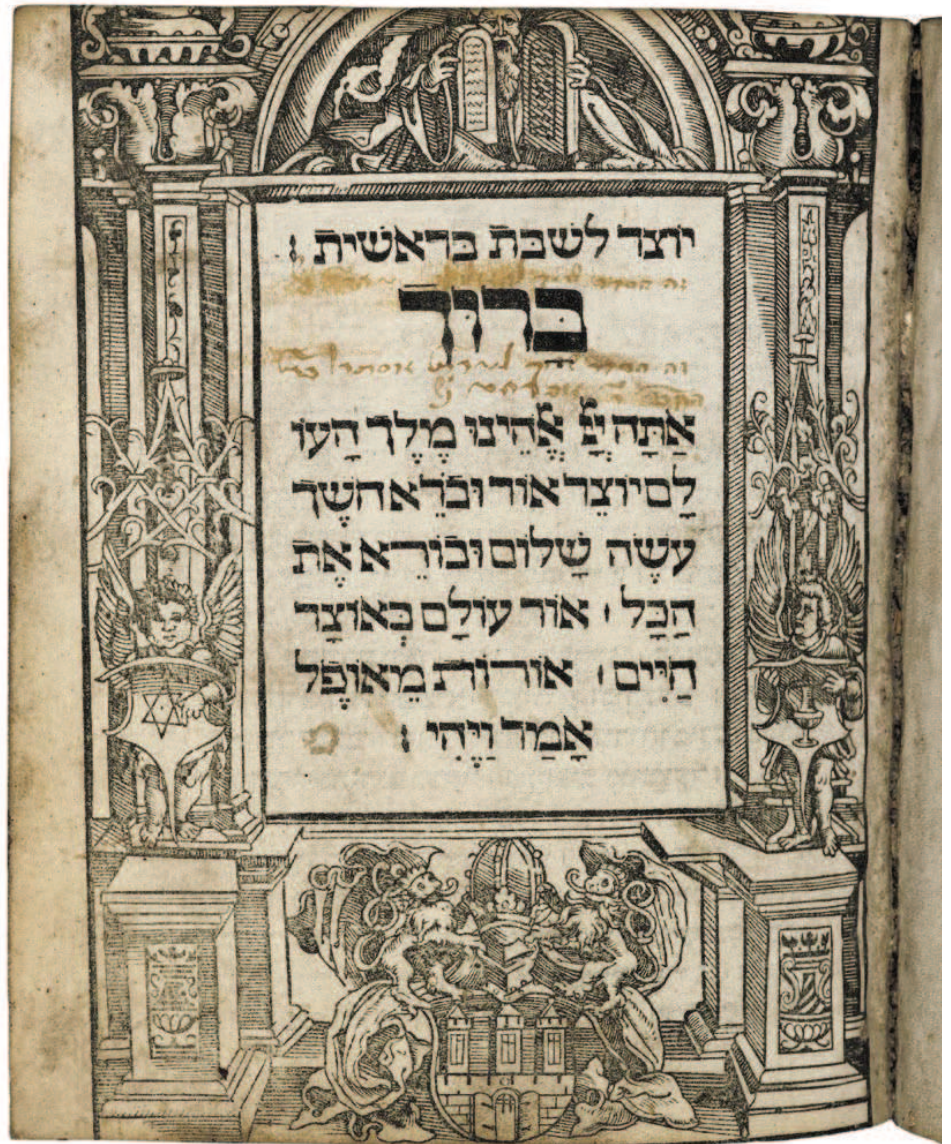 יוצר לשבת בראשית :
וה הסדר
בָּרוּךְ
וה הסדר
אַתָּה יְיָ אֱלֹהֵינוּ מֶלֶךְ הָעוֹ
לָם יוֹצֵר אוֹר וּבֹרֵא חשֶׁךְ
עֹשֶׂה שָׁלוֹם וּבוֹרֵא אֶת
הַכֹּל : אוֹר עוֹלָם בְּאוֹצַר
חַיִּים : אוֹרוֹת מֵאוֹפֶל
אָמַר וַיֶּהִי :